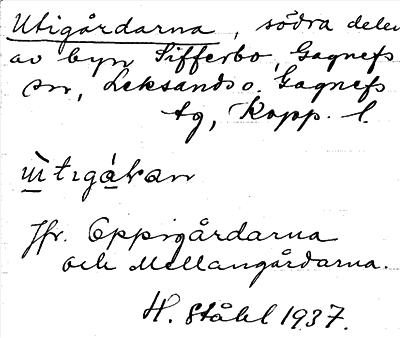 Utigårdarna, södra delen
av byn Sifferbo, Gagnefs
sn, Leksands o. Gagnefs
tg, Kopp. l.
ùtigákan
Jfr. Oppigårdarna
och Mellangårdarna.
H. Ståhl 1937.